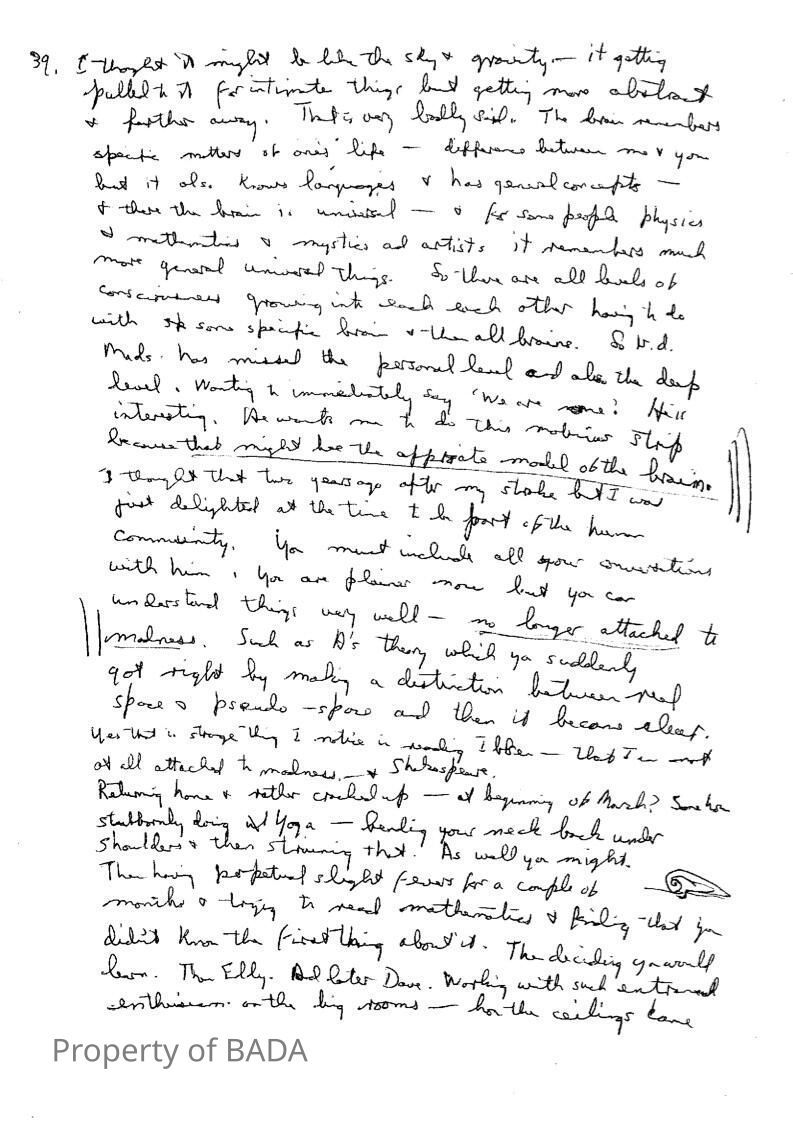 39. I thought it might be like the sky & gravity — it getting
pulled to it for intimate things but getting more abstract
& farther away. That is very badly said. The brain remembers
specific matters of ones' life — difference between me & you
but it also knows languages & has general concepts —
& there the brain is universal — & for some people physics
& mathematics & mystics and artists it remembers much
more general universal things. So there are all levels of
consciousness growing into each each other having to do
with some specific brain & then all brains. So
has missed the personal level and also the deep
level. Wanting to immediately say 'We are one? He is
interesting. He wants me to do this mobius strip
because that might be the model of the brain.
I thought that two years ago after my stroke but I was
just delighted at the time to be part of the human
community. You must include all your conversations
with him. You are plainer now but you can
understand things very well — no longer attached to
madness. Such as A's theory which you suddenly
got right by making a distinction between real
space & pseudo-space and then it became clear.
Yes that is strange thing I notice in reading Ibsen — that I am not
at all attached to madness — & Shakespeare.
Returning home & rather cracked up — at beginning of March? Somehow
stubbornly doing Yoga — bending your neck back under
shoulders & then straining that. As well you might.
Then having perpetual slight fevers for a couple of
months & trying to read mathematics & finding that you
didn't know the first thing about it. Then deciding you would
learn. Then Elly. And later Dave. Working with such entranced
enthusiasm on the big rooms — how the ceilings came
Property of BADA